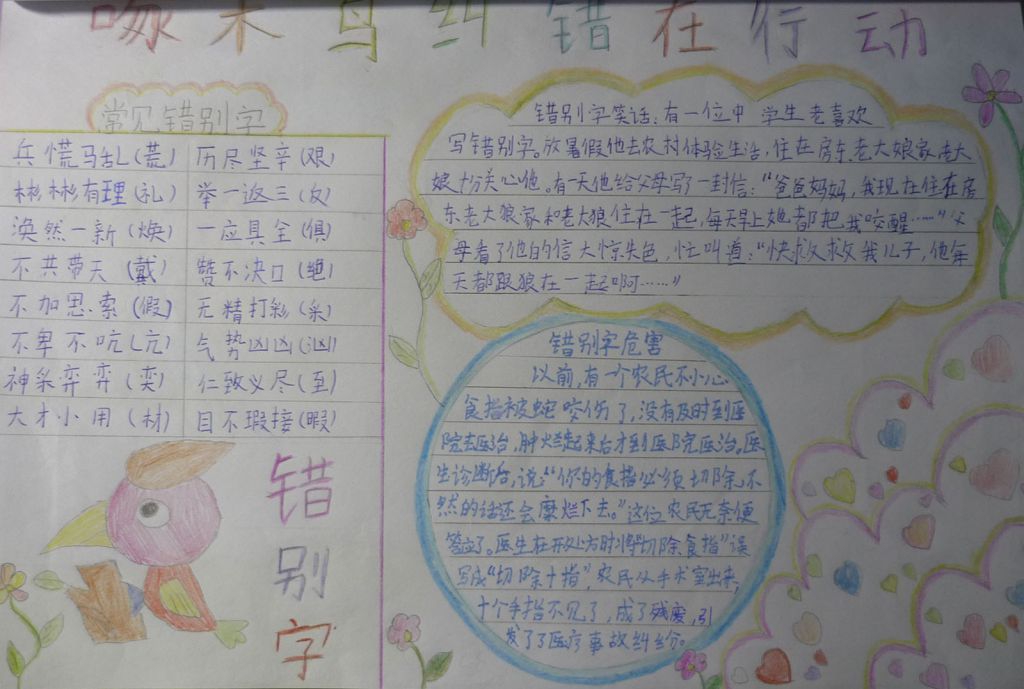 啄木鸟纠错在行动
常见错别字
兵慌马乱(荒) 历尽坚辛(艰)
彬彬有理(礼) 举一返三(反)
涣然一新(焕) 一应具全(俱)
不共带天(戴) 赞不决口(绝)
不加思索(假) 无精打彩(采)
不卑不吭(亢) 气势凶凶(汹)
神采弈弈(奕) 仁致义尽(至)
大才小用(材) 目不瑕接(暇)
错别字
错别字笑话:有一位中学生老喜欢
写错别字。放暑假他去农村体验生活,住在房东老大娘家老大
娘十分关心他。有一天他给父母写了一封信:“爸爸妈妈,我现在住在房
东老大狼家和老大狼住在一起,每天早上她都把我咬醒……”父
母看了他的信大惊失色,忙叫道:“快救救我儿子,他每
天都跟狼在一起啊……”
错别字危害
以前,有一个农民不小心
食指被蛇咬伤了,没有及时到医
院去医治,肿烂起来后才到医院医治。医
生诊断后,说:“你的食指必须切除,不
然的话还会糜烂下去。”这位农民无奈便
答应了。医生在开处方时将“切除食指”误
写成“切除十指”,农民从手术室出来,
十个手指不见了,成了残废,引
发了了医疗事故纠纷。